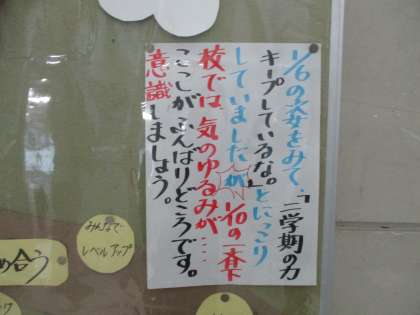 1/6の姿をみて、「二学期の力
キープしているな。」とにっこり
していましたが、1/10の一斉下
校では、気のゆるみが…
ここがふんばりどころです。
意識しましょう。
みんなで
レベルアップ
め合う